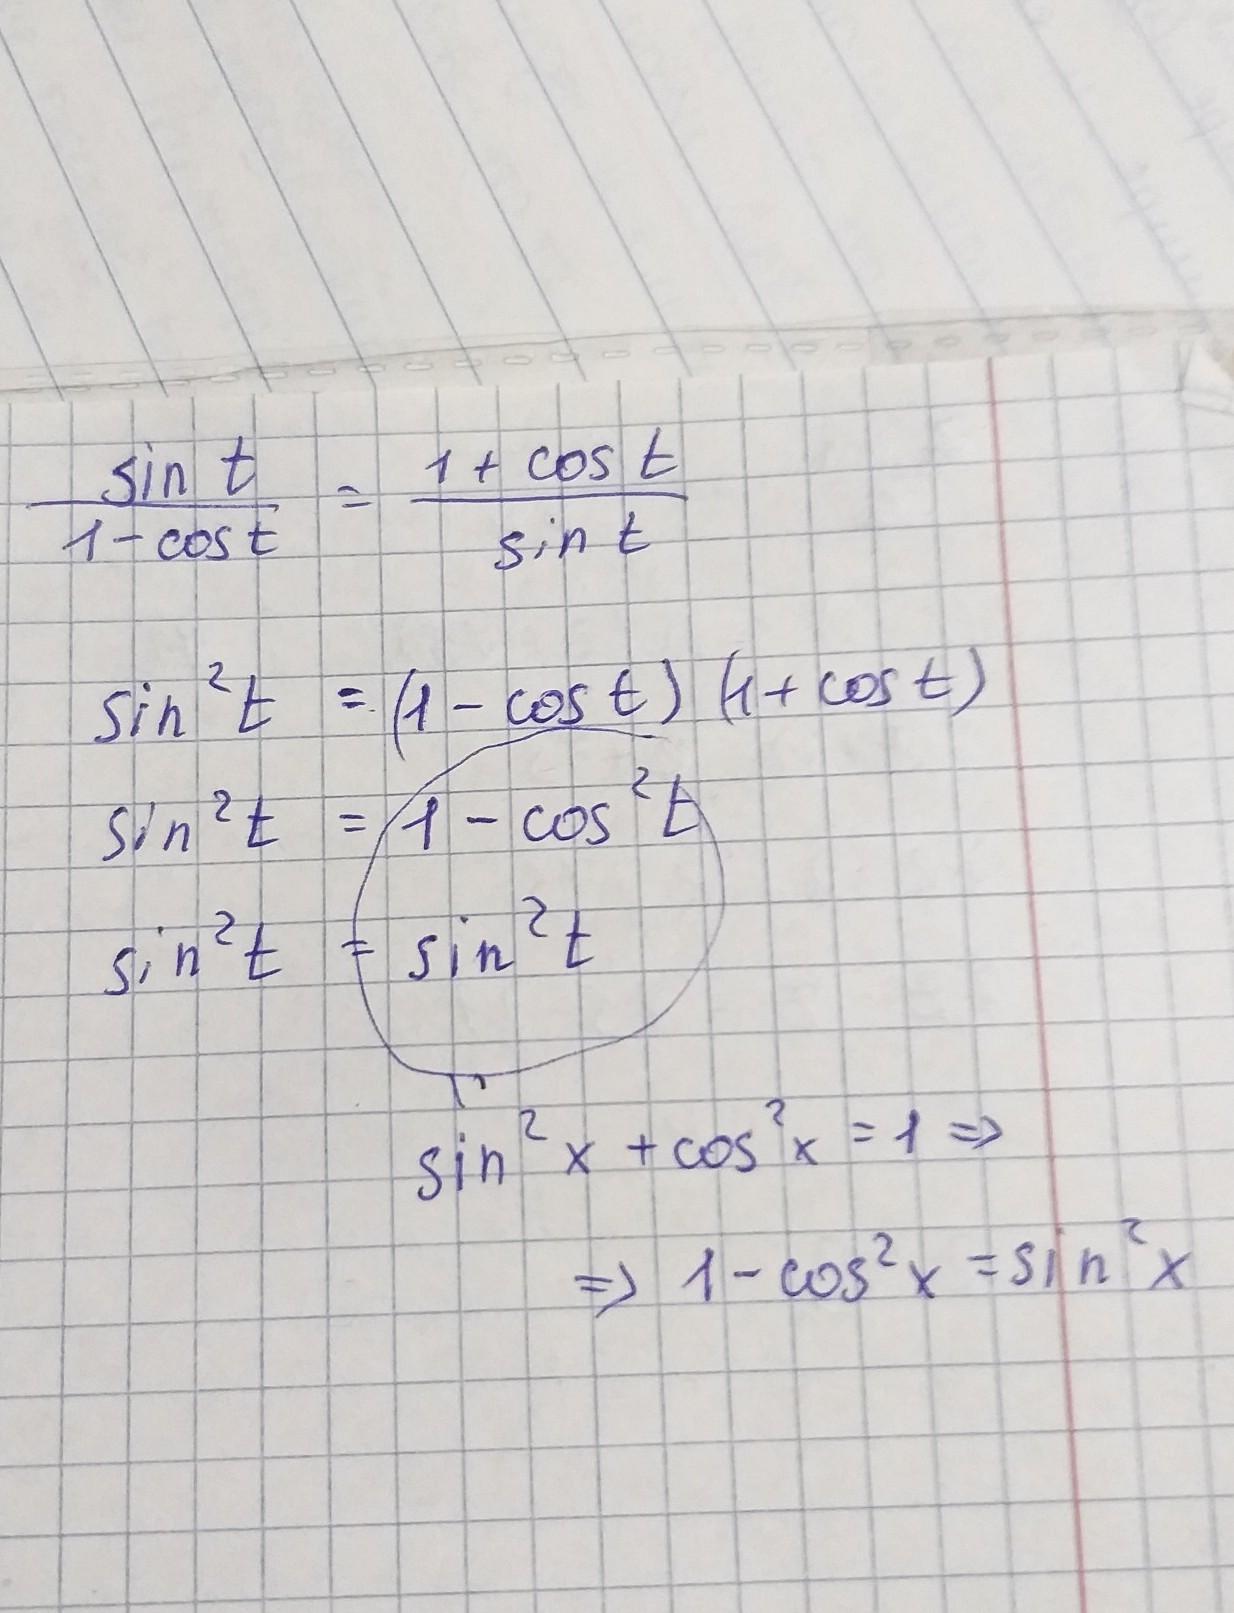 sin t / 1 - cos t = 1 + cos t / sin t
sin²t = (1 - cos t) (1 + cos t)
sin²t = 1 - cos²t
sin²t = sin²t
sin²x + cos²x = 1 ⇒
⇒ 1 - cos²x = sin²x